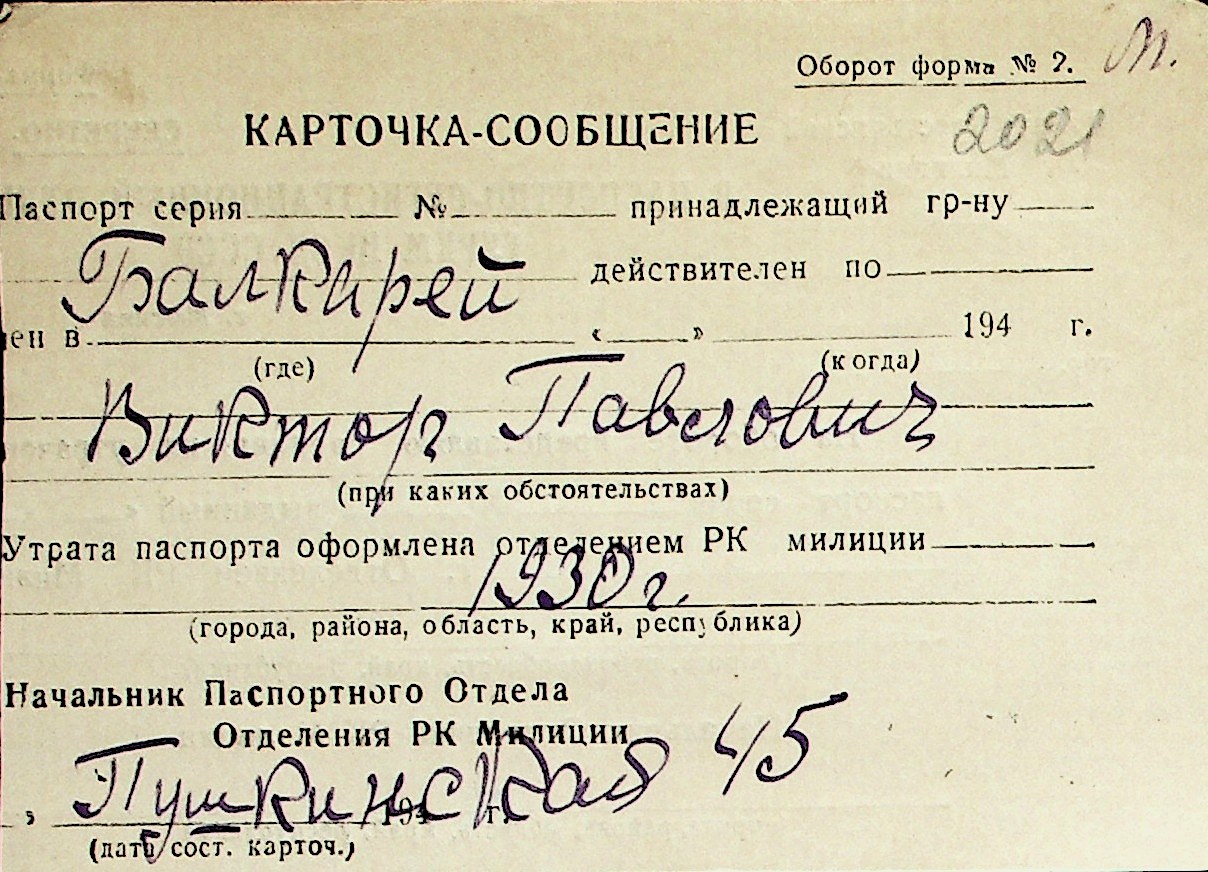 Оборот форма № 2. М.
КАРТОЧКА-СООБЩЕНИЕ 2021
Паспорт серия № принадлежащий гр-ну
Балкирей действителен по
ен в « » 194 г.
(где) (когда)
Виктор Павлович
(при каких обстоятельствах)
Утрата паспорта оформлена отделением РК милиции
1930 г.
(города, района, область, край, республика)
Начальник Паспортного Отдела
Отделения РК Милиции
Пушкинская 45
, 194 г.
(дата сост. карточ.)